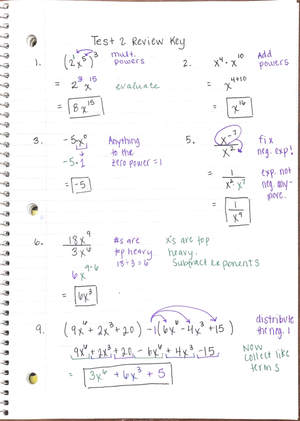 Test 2 Review Key
1. (2¹x⁵)³ mult. powers
= 2³x¹⁵ evaluate
= 8x¹⁵
2. x⁴ · x¹⁰ Add powers
= x⁴⁺¹⁰
= x¹⁶
3. -5x⁰ Anything to the zero power = 1
-5·1
= -5
5. x⁻⁷/x² fix neg. exp!
= 1/(x²·x⁷) exp. not neg. anymore.
= 1/x⁹
6. 18x⁹/3x⁶ #s are top heavy 18÷3=6 x's are top heavy. Subtract exponents
6x⁹⁻⁶
= 6x³
9. (9x⁶ + 2x³ + 20) -1(6x⁶ - 4x³ + 15) distribute the neg. 1
9x⁶ + 2x³ + 20 - 6x⁶ + 4x³ - 15 Now collect like terms
= 3x⁶ + 6x³ + 5